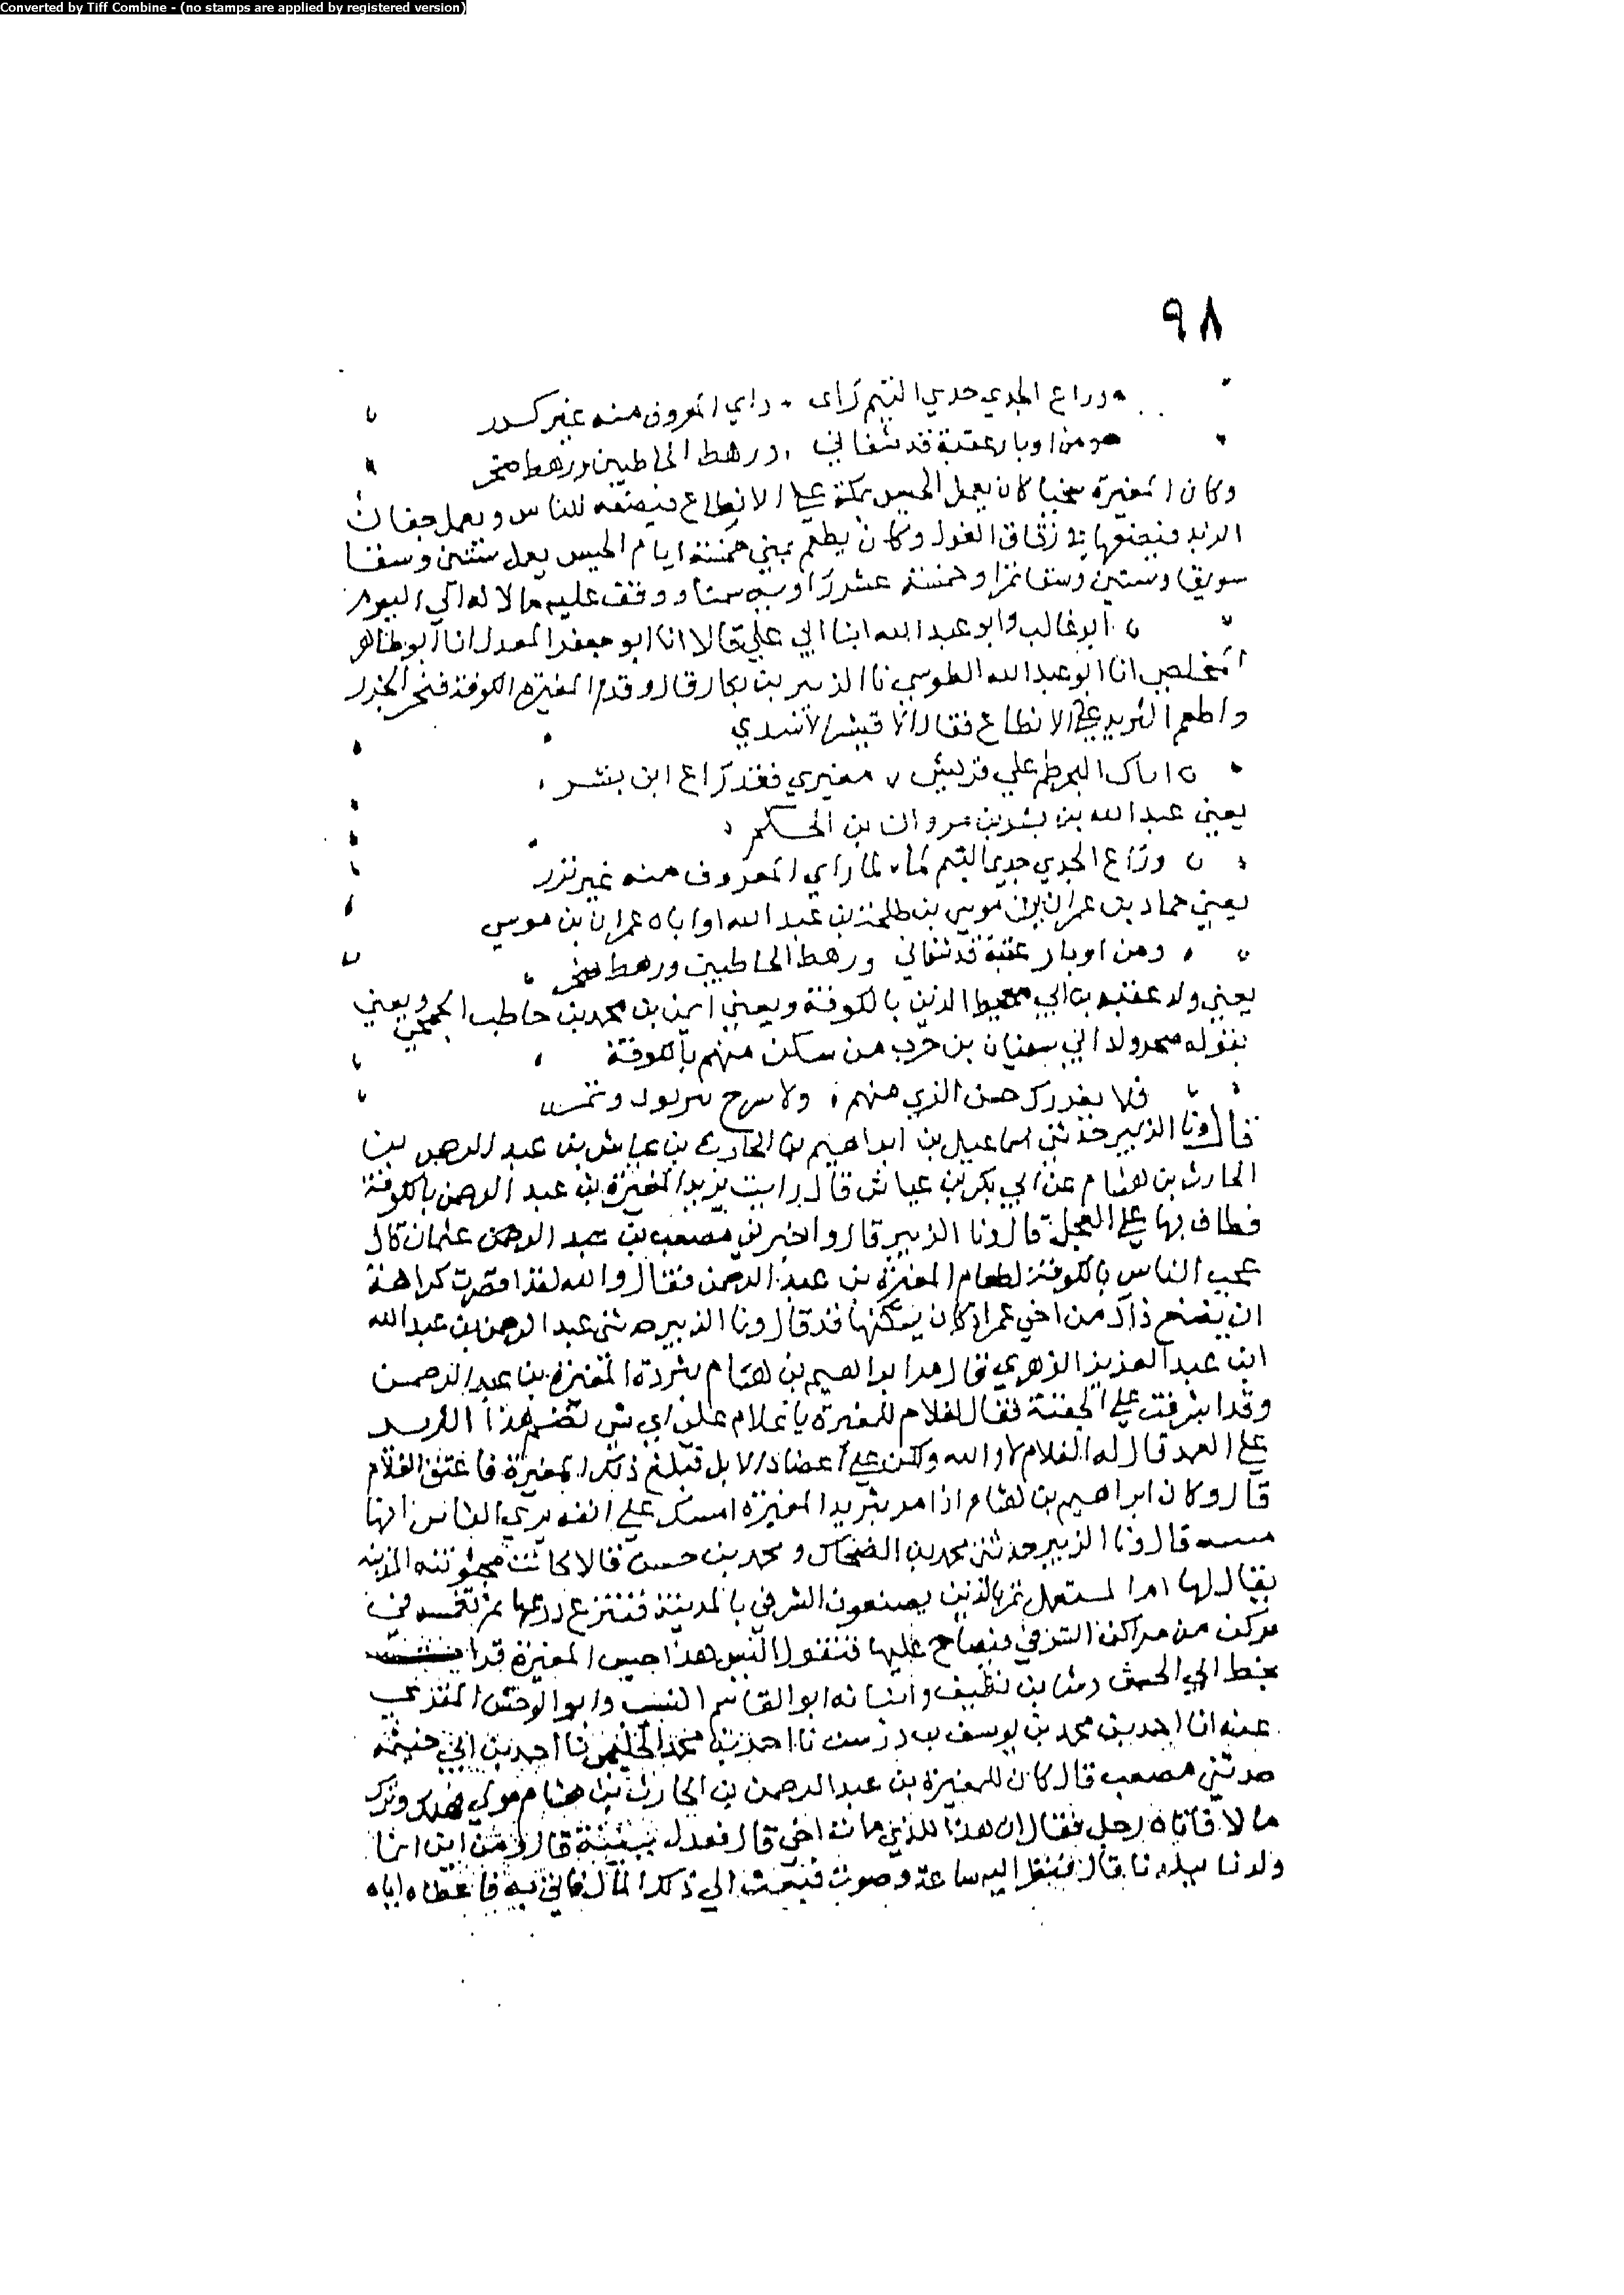 Converted by Tiff Combine - (no stamps are applied by registered version)
٩٨
وراع الجدي جدي التيم راى راي المعروف منه غير كدر
ومن اوبار عقبة قد شفاني ورهط الحاطبين ورهط صخر
وكان المغيرة سخيا كان يعمل الحيس بمكة على الانطاع فيضعه للناس ويعمل جفان
الزبد فيضعها في زقاق الغول وكان يطعم بمنى خمسة ايام الحيس يعمل ستين وسقا
سويقا وستين وسقا تمرا وخمسة عشر راوية سمنا ووقف عليه مالا له الى اليوم
ابو غالب وابو عبد الله ابنا ابي علي قالا انا ابو جعفر المعدل انا ابو طاهر
المخلص انا ابو عبد الله الطوسي نا الزبير بن بكار قال وقدم المغيرة الكوفة فنحر الجزر
واطعم الثريد على الانطاع فقال الاقيشر الاسدي
اتاك البحر طم على قريش مغيري فقد راع ابن بشر
يعني عبد الله بن بشر بن مروان بن الحكم
وراع الجدي جدي التيم لما راي المعروف منه غير نزر
يعني حماد بن عمران بن موسى بن طلحة بن عبد الله او اباه عمران بن موسي
ومن اوبار عقبة قد شفاني ورهط الحاطبين ورهط صخر
يعني ولد عقبة بن ابي معيط الذين بالكوفة ويعني ابن محمد بن حاطب الجمحي ويعني
بقوله صخر ولد ابي سفيان بن حرب من سكن منهم بالكوفة
فلا يغررك حسن الزي منهم ولا سرح
قال ونا الزبير حدثني اسماعيل بن ابراهيم بن الحارث بن عياش بن عبد الرحمن بن
الحارث بن هشام عن ابي بكر بن عياش قال رايت ثريد المغيرة بن عبد الرحمن بالكوفة
فطاف بها على العجل قال ونا الزبير قال واخبرني مصعب بن عبد الرحمن عثمان قال
عجب الناس بالكوفة لطعام المغيرة بن عبد الرحمن فقال والله لقد اقصرت كراهة
ان يفضح ذاك من اخي عمر قال ونا الزبير حدثني عبد الرحمن بن عبد الله
ابن عبد العزيز الزهري قال مر ابراهيم بن هشام بثردة المغيرة بن عبد الرحمن
وقد اشرفت على الجفنة فقال لغلام للمغيرة يا غلام على اي شي هذا الثريد
على العمد قال له الغلام لا والله ولكن على اعضاد الابل فبلغ ذلك المغيرة فاعتق الغلام
قال وكان ابراهيم بن هشام اذا مر بثريد المغيرة امسك على انفه يري الناس انها
قال ونا الزبير حدثني محمد بن الضحاك ومحمد بن حسن قالا كانت المدينة
يقال لها بالذين يصنعون الشرفي بالمدينة فتنزع درعها ثم تغمسه في
مركن من مراكن فيصاح عليها فتقول اليس هذا حيس المغيرة قد
بخط ابي الحسن رشا بن نظيف وانبانه ابو القاسم النسيب وابو الوحش المقري
عنه انا احمد بن محمد بن يوسف بن نا احمد بن محمد نا احمد بن ابي خيثمة
حدثني مصعب قال كان للمغيرة بن عبد الرحمن بن الحارث بن هشام مولى فهلك وترك
مالا فاتاه رجل فقال ان هذا الذي مات اخي قال فهل لك بينة قال ومن اين انما
ولدنا ببلدنا قال فنظر اليه ساعة وصوب فبعث الي ذلك المال فاتي به فاعطاه اياه